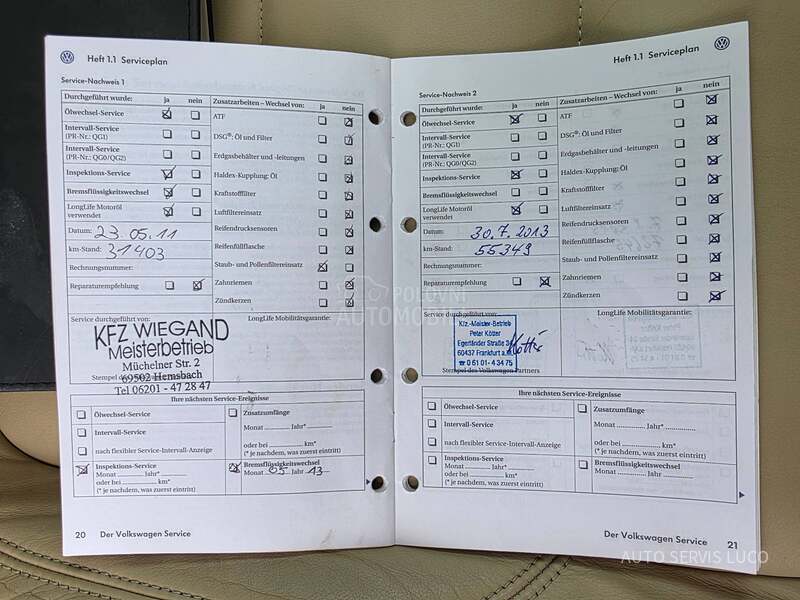 Heft 1.1 Serviceplan
Service-Nachweis 1
Durchgeführt wurde: ja nein
Zusatzarbeiten – Wechsel von: ja nein
Ölwechsel-Service
ATF
Intervall-Service
(PR-Nr.: QG1)
DSG®: Öl und Filter
Intervall-Service
(PR-Nr.: QG0/QG2)
Erdgasbehälter und -leitungen
Inspektions-Service
Haldex-Kupplung: Öl
Bremsflüssigkeitswechsel
Kraftstofffilter
LongLife Motoröl
verwendet
Luftfiltereinsatz
Datum: 23.05.11
Reifendrucksensoren
km-Stand: 31403
Reifenfüllflasche
Rechnungsnummer:
Staub- und Pollenfiltereinsatz
Reparaturempfehlung
Zahnriemen
Zündkerzen
Service durchgeführt von:
LongLife Mobilitätsgarantie:
KFZ WIEGAND
Meisterbetrieb
Müchelner Str. 2
69502 Hemsbach
Tel 06201 - 47 28 47
Ihre nächsten Service-Ereignisse
Ölwechsel-Service
Zusatzumfänge
Monat Jahr*
Intervall-Service
oder bei km*
nach flexibler Service-Intervall-Anzeige
(* je nachdem, was zuerst eintritt)
Inspektions-Service
Monat Jahr*
oder bei km*
(* je nachdem, was zuerst eintritt)
Bremsflüssigkeitswechsel
Monat 05 Jahr 13
20 Der Volkswagen Service
Heft 1.1 Serviceplan
Service-Nachweis 2
Durchgeführt wurde: ja nein
Zusatzarbeiten – Wechsel von: ja nein
Ölwechsel-Service
ATF
Intervall-Service
(PR-Nr.: QG1)
DSG®: Öl und Filter
Intervall-Service
(PR-Nr.: QG0/QG2)
Erdgasbehälter und -leitungen
Inspektions-Service
Haldex-Kupplung: Öl
Bremsflüssigkeitswechsel
Kraftstofffilter
LongLife Motoröl
verwendet
Luftfiltereinsatz
Datum: 30.7.2013
Reifendrucksensoren
km-Stand: 55349
Reifenfüllflasche
Rechnungsnummer:
Staub- und Pollenfiltereinsatz
Reparaturempfehlung
Zahnriemen
Zündkerzen
Service durchgeführt von:
LongLife Mobilitätsgarantie:
Kfz.-Meister-Betrieb
Peter Kötter
Egerländer Straße 34
60437 Frankfurt a.
☎ 0 61 01 - 4 34 75
Kötter
Stempel des Volkswagen Partners
Ihre nächsten Service-Ereignisse
Ölwechsel-Service
Zusatzumfänge
Intervall-Service
Monat Jahr*
nach flexibler Service-Intervall-Anzeige
oder bei km*
(* je nachdem, was zuerst eintritt)
Inspektions-Service
Monat Jahr*
oder bei km*
(* je nachdem, was zuerst eintritt)
Bremsflüssigkeitswechsel
Monat Jahr
Der Volkswagen Service 21
POLOVNI
AUTOMOBILI
AUTO SERVIS LUCO